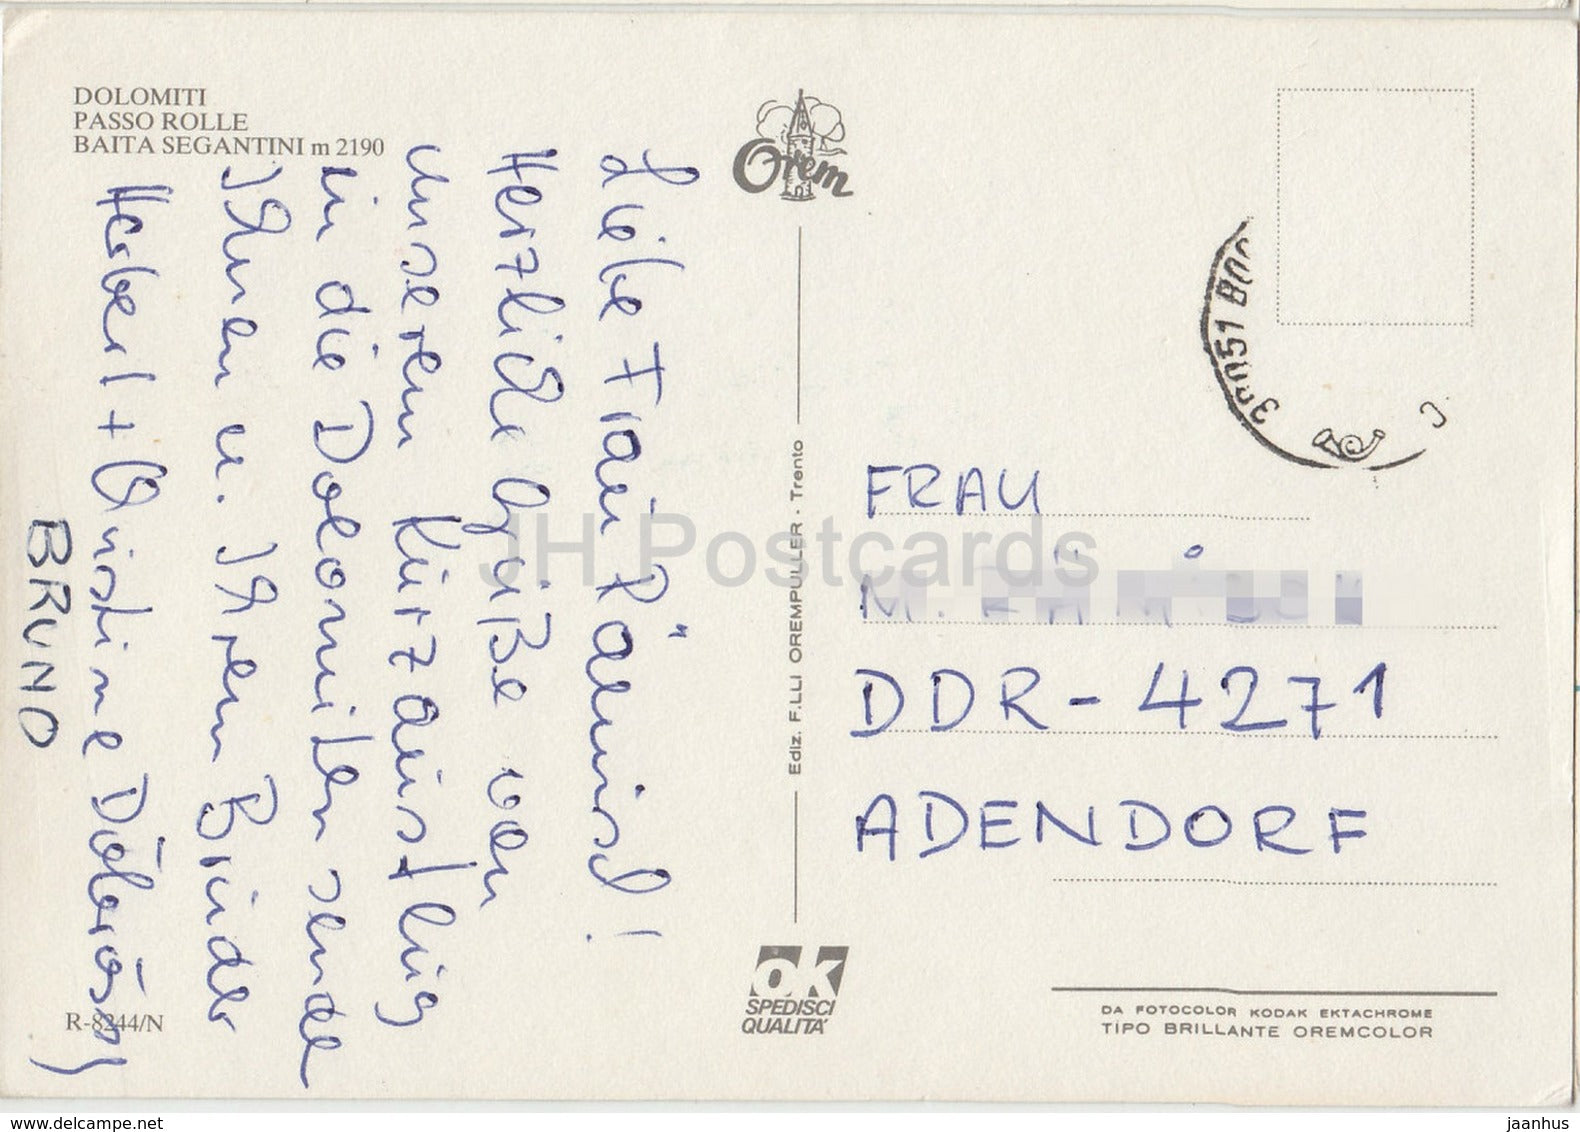 DOLOMITI
PASSO ROLLE
BAITA SEGANTINI m 2190
Liebe Frau Rämisch!
Herzliche Grüße von
unserem Kurzausflug
in die Dolomiten sende
Ihnen u. Ihrem Bruder
Herbert + Christine
BRUNO
R-8244/N
Orem
Ediz. F.LLI OREMPULLER - Trento
OK
SPEDISCI
QUALITA'
39051
FRAU
M.
DDR - 4271
ADENDORF
DA FOTOCOLOR KODAK EKTACHROME
TIPO BRILLANTE OREMCOLOR
JH Postcards
www.delcampe.net
jaanhus